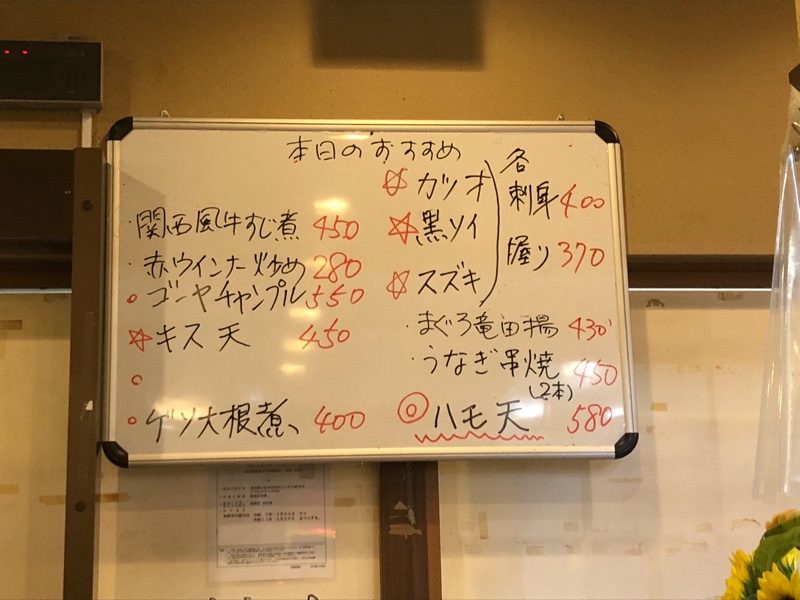 本日のおすすめ
関西風牛すじ煮 450
赤ウインナー炒め 280
ゴーヤチャンプル 550
キス天 450
ゲソ大根煮 400
カツオ
黒ソイ
スズキ
各
刺身 400
握り 370
まぐろ竜田揚 430
うなぎ串焼 450
(2本)
ハモ天 580